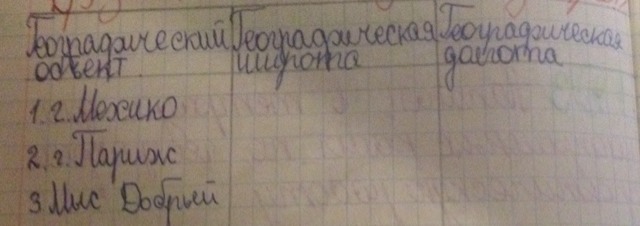 Географический Географическая Географическая
объект широта долгота
1. г. Мехико
2. г. Париж
3 Мыс Добрый